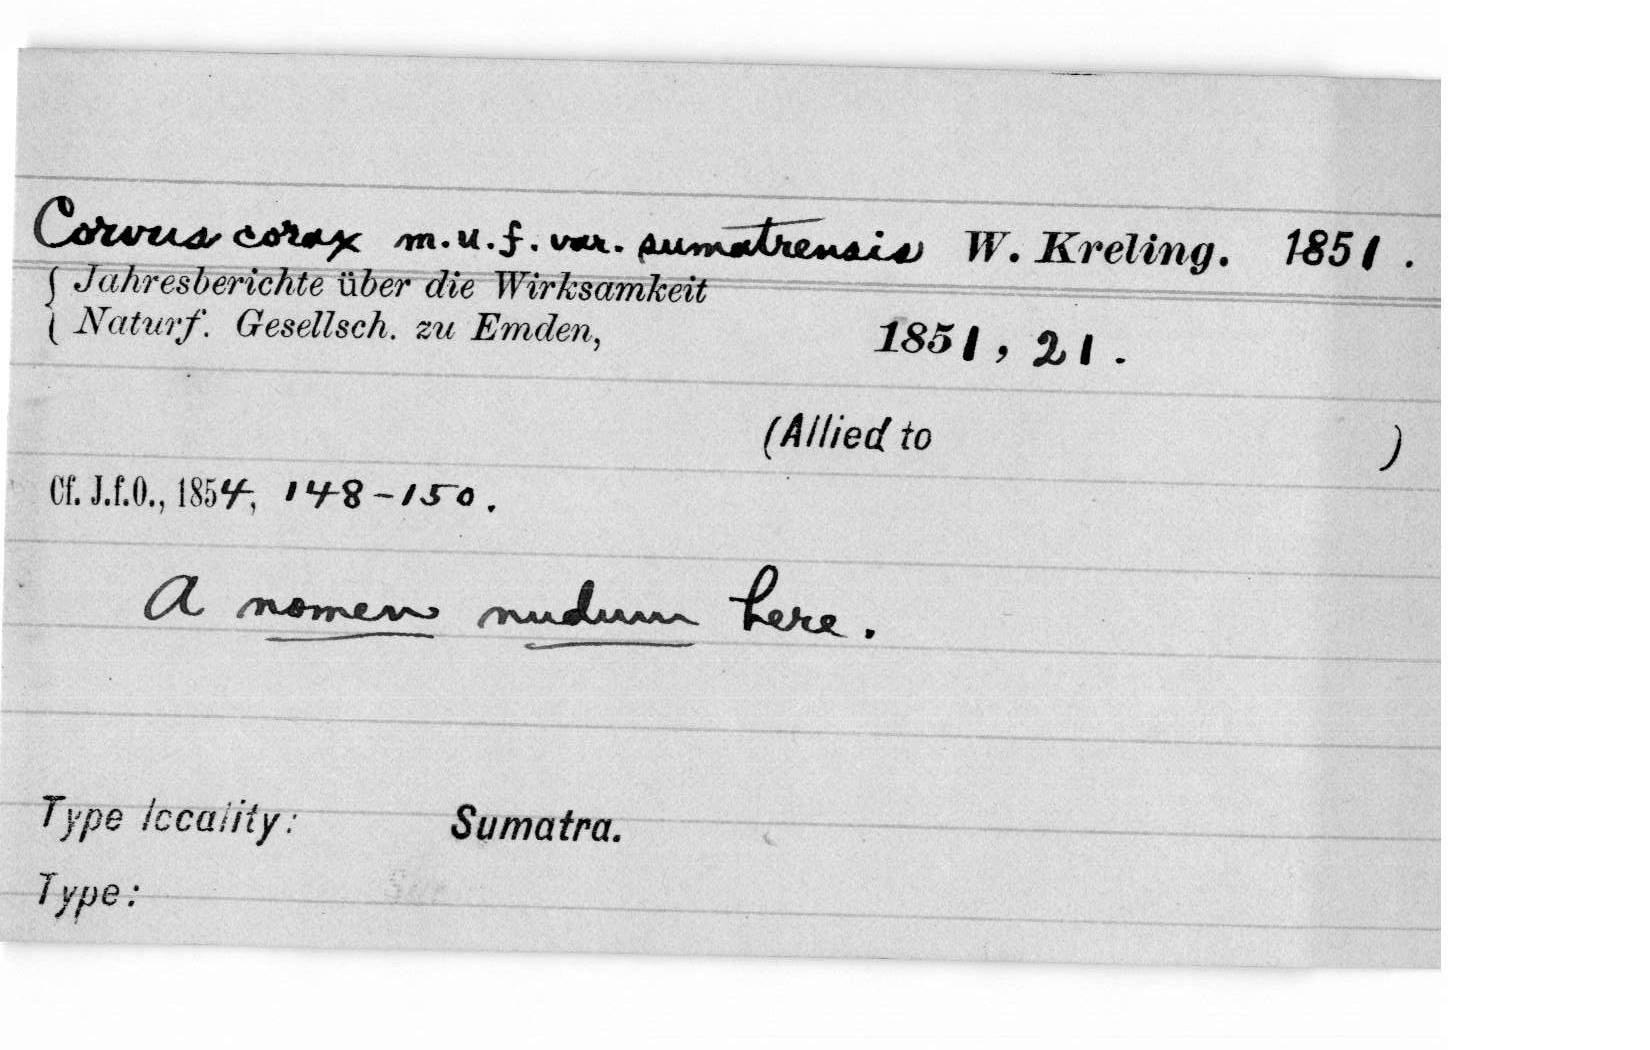 Corvus corax m.u.f. var. sumatrensis W. Kreling. 1851.
{ Jahresberichte über die Wirksamkeit
{ Naturf. Gesellsch. zu Emden, 1851, 21.
(Allied to )
Cf. J.f.O., 1854, 148-150.
A nomen nudum here.
Type locality: Sumatra.
Type: